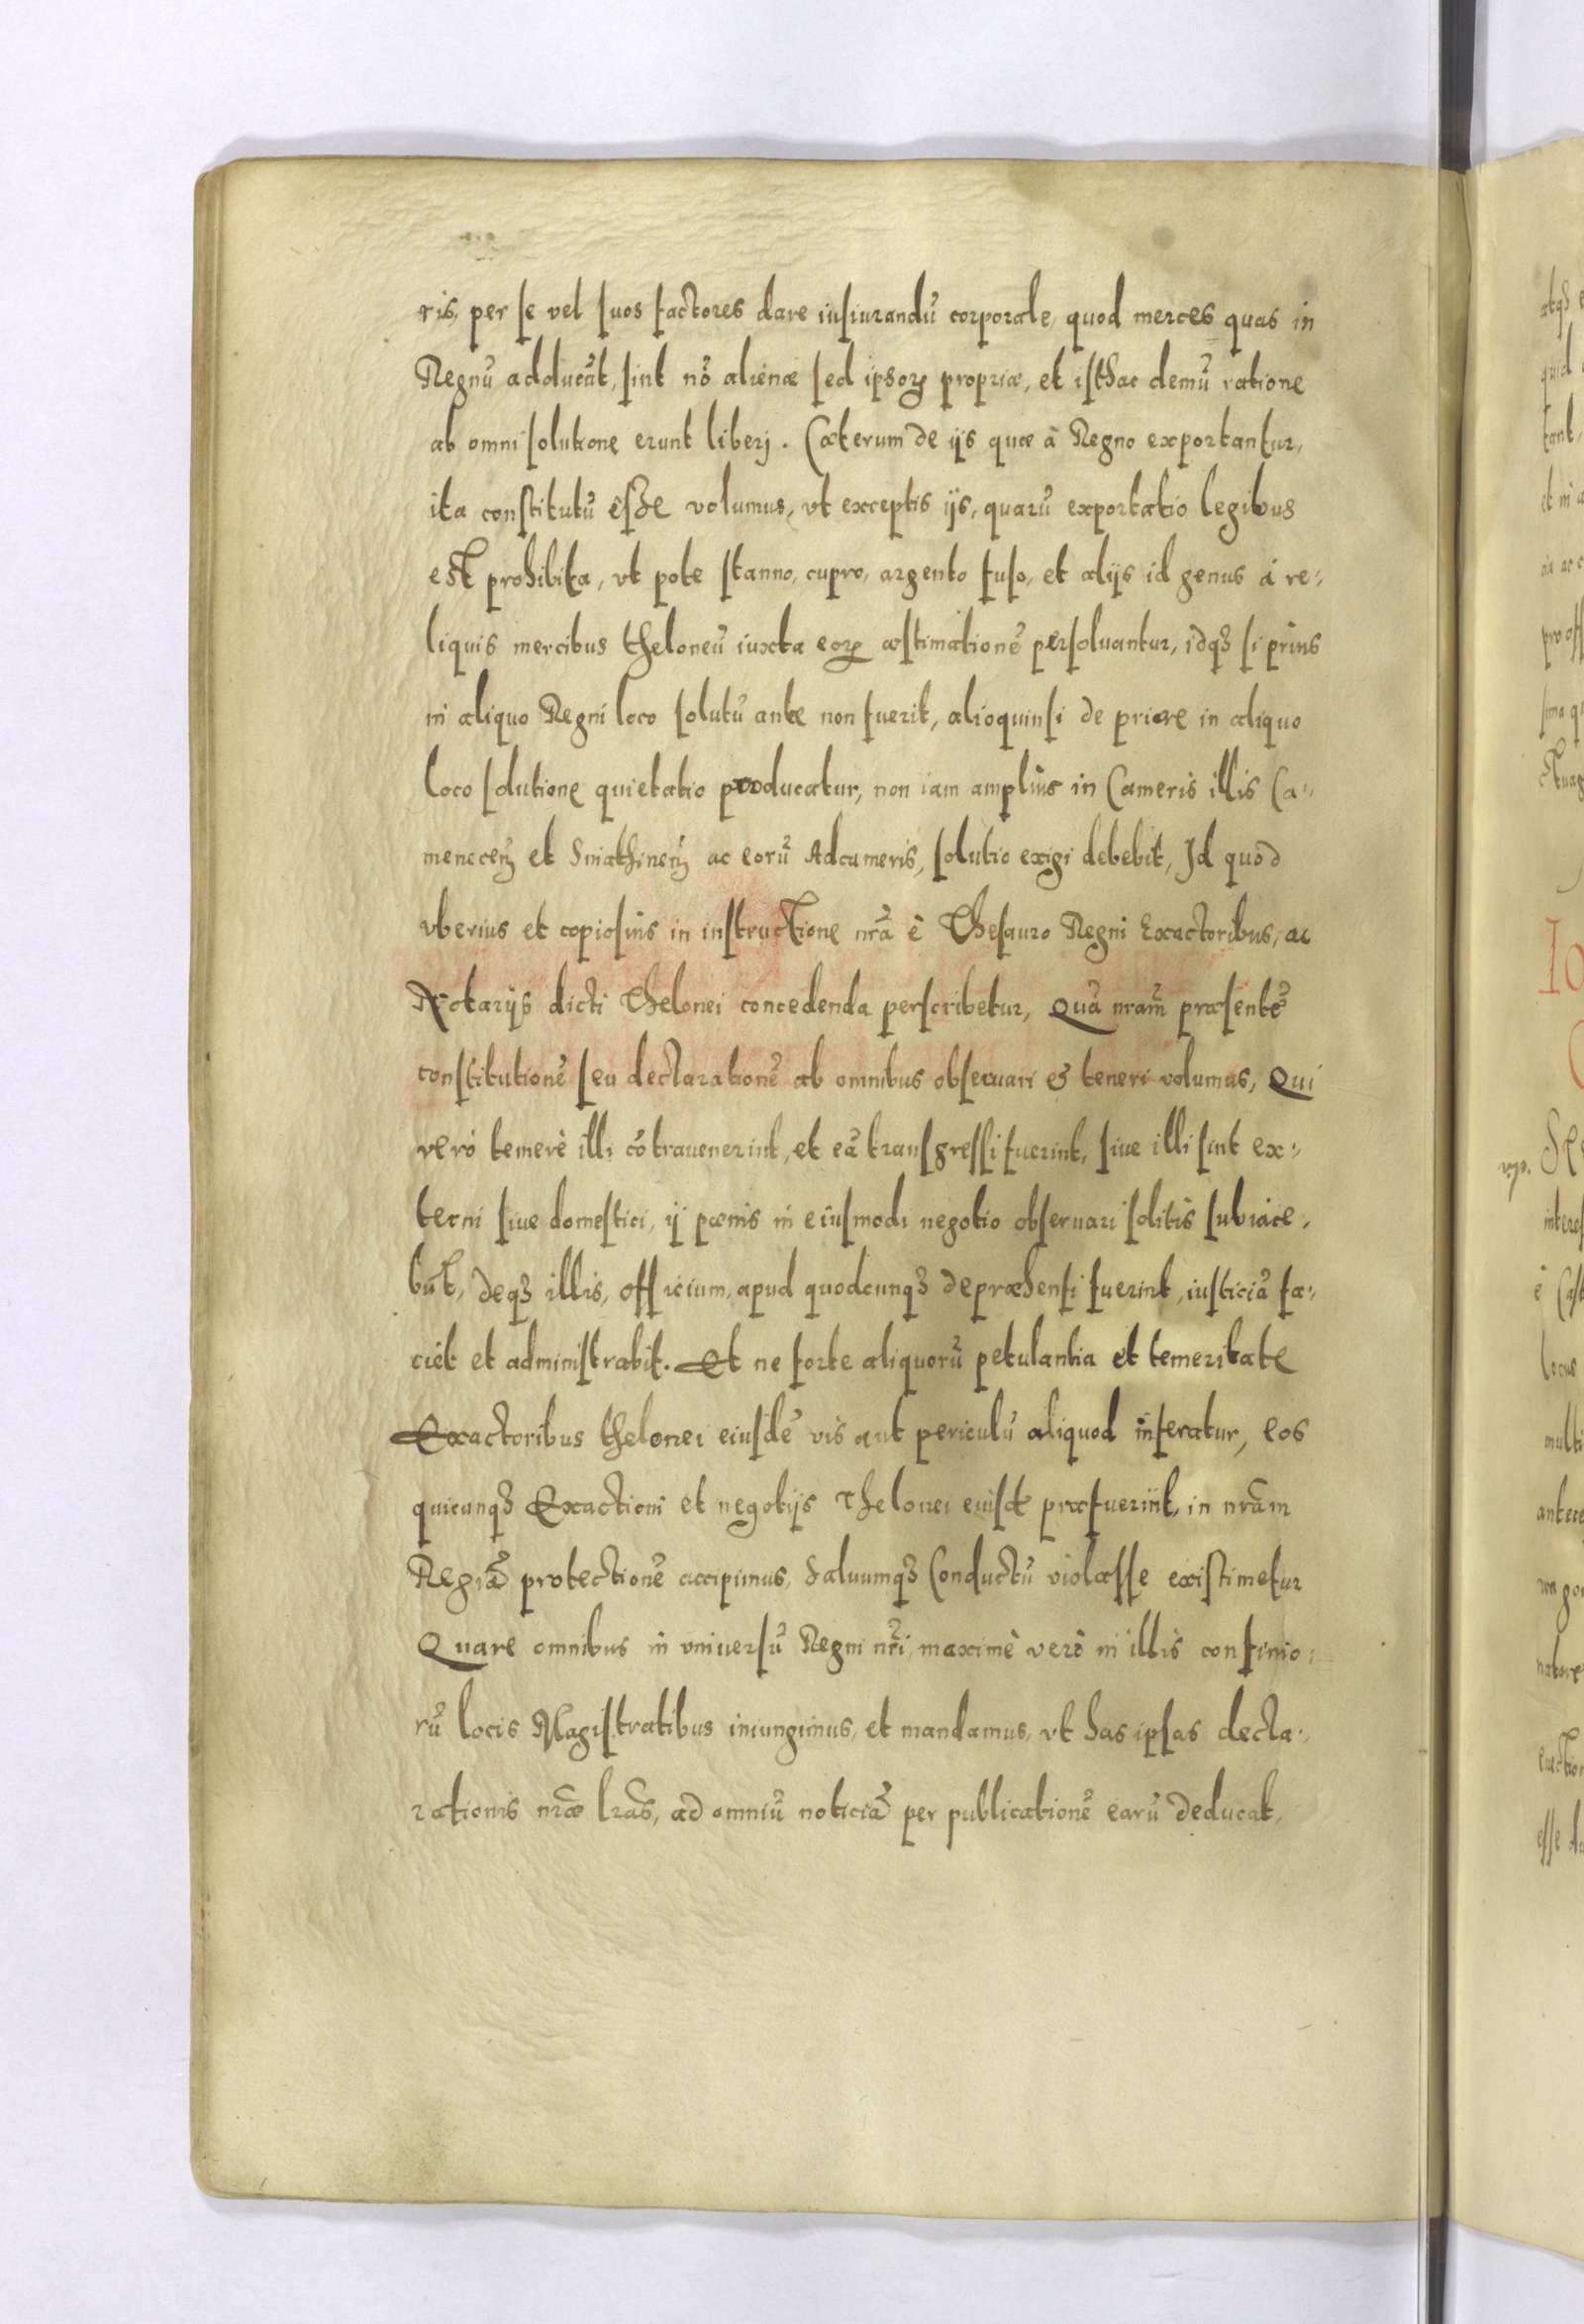 ris, per se vel suos factores dare iusiurandū corporale, quod merces quas in
Regnū adducūt, sint nō alienæ sed ipsoꝝ propriæ, et isthac demū ratione
ab omni solutione erunt liberj. Cæterum de ijs quæ à Regno exportantur,
ita constitutū esse volumus, vt exceptis ijs, quarū exportatio legibus
est prohibita, vt pote stanno, cupro, argento fuso, et alijs id genus á re-
liquis mercibus theloneū iuxta eoꝝ æstimationē persoluantur, idqꝫ si prius
in aliquo Regni loco solutū ante non fuerit, alioquin si de priore in aliquo
loco solutione quietatio producatur, non iam amplius in Cameris illis Ca-
meneceñ et Sniathineñ ac eorū Adcameris, solutio exigi debebit, Id quod
vberius et copiosius in instructione nrā è Thesauro Regni Exactoribus, ac
Notarijs dicti Thelonei concedenda perscribetur, Quā nram̄ præsentē
constitutionē seu declarationē ab omnibus obseruari & teneri volumus, Qui
verò temerè illi cōtrauenerint, et eā transgressi fuerint, siue illi sint ex-
terni siue domestici, ij pœnis in eiusmodi negotio obseruari solitis subiace-
būt, deqꝫ illis, officium, apud quodcunqꝫ depræhensi fuerint, iusticiā fa-
ciet et administrabit. Et ne forte aliquorū petulantia et temeritate
Exactoribus thelonei eiusdē vis aut periculū aliquod inferatur, eos
quicunqꝫ Exactioni et negotijs Thelonei eiusdē præfuerint, in nrām
Regiā protectionē accipimus, Saluumqꝫ Conductū violasse existimetur
Quare omnibus in vniuersū Regni nrī, maximè verò in illis confinio-
rū locis Magistratibus iniungimus, et mandamus, vt has ipsas decla-
rationis nrǣ lrās, ad omniū noticiā per publicationē earū deducāt,